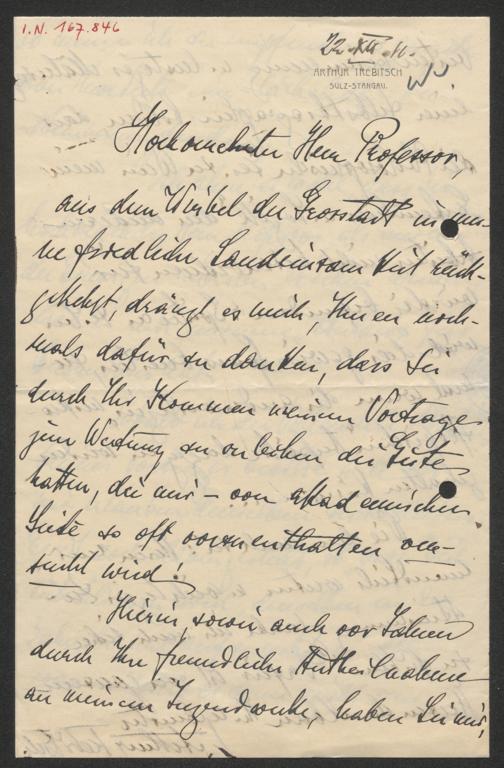 I.N. 167.846
22. XII. 11.
ARTHUR TREBITSCH
SULZ-STANGAU.
Hochgeehrter Herr Professor,
aus dem Wirbel der Grosstadt in mei-
ne friedliche Landeinsamkeit rück-
gekehrt, drängt es mich, Ihnen noch-
mals dafür zu danken, dass Sie
durch Ihr Kommen meinem Vortrage
jene Wertung zu verleihen die Güte
hatten, die mir – von akademischer
Seite so oft vorzuenthalten ver-
sucht wird!
Hierin, sowie auch vor Jahren
durch Ihre freundliche Antheilnahme
an meinem Jugendwerke, haben Sie mir,